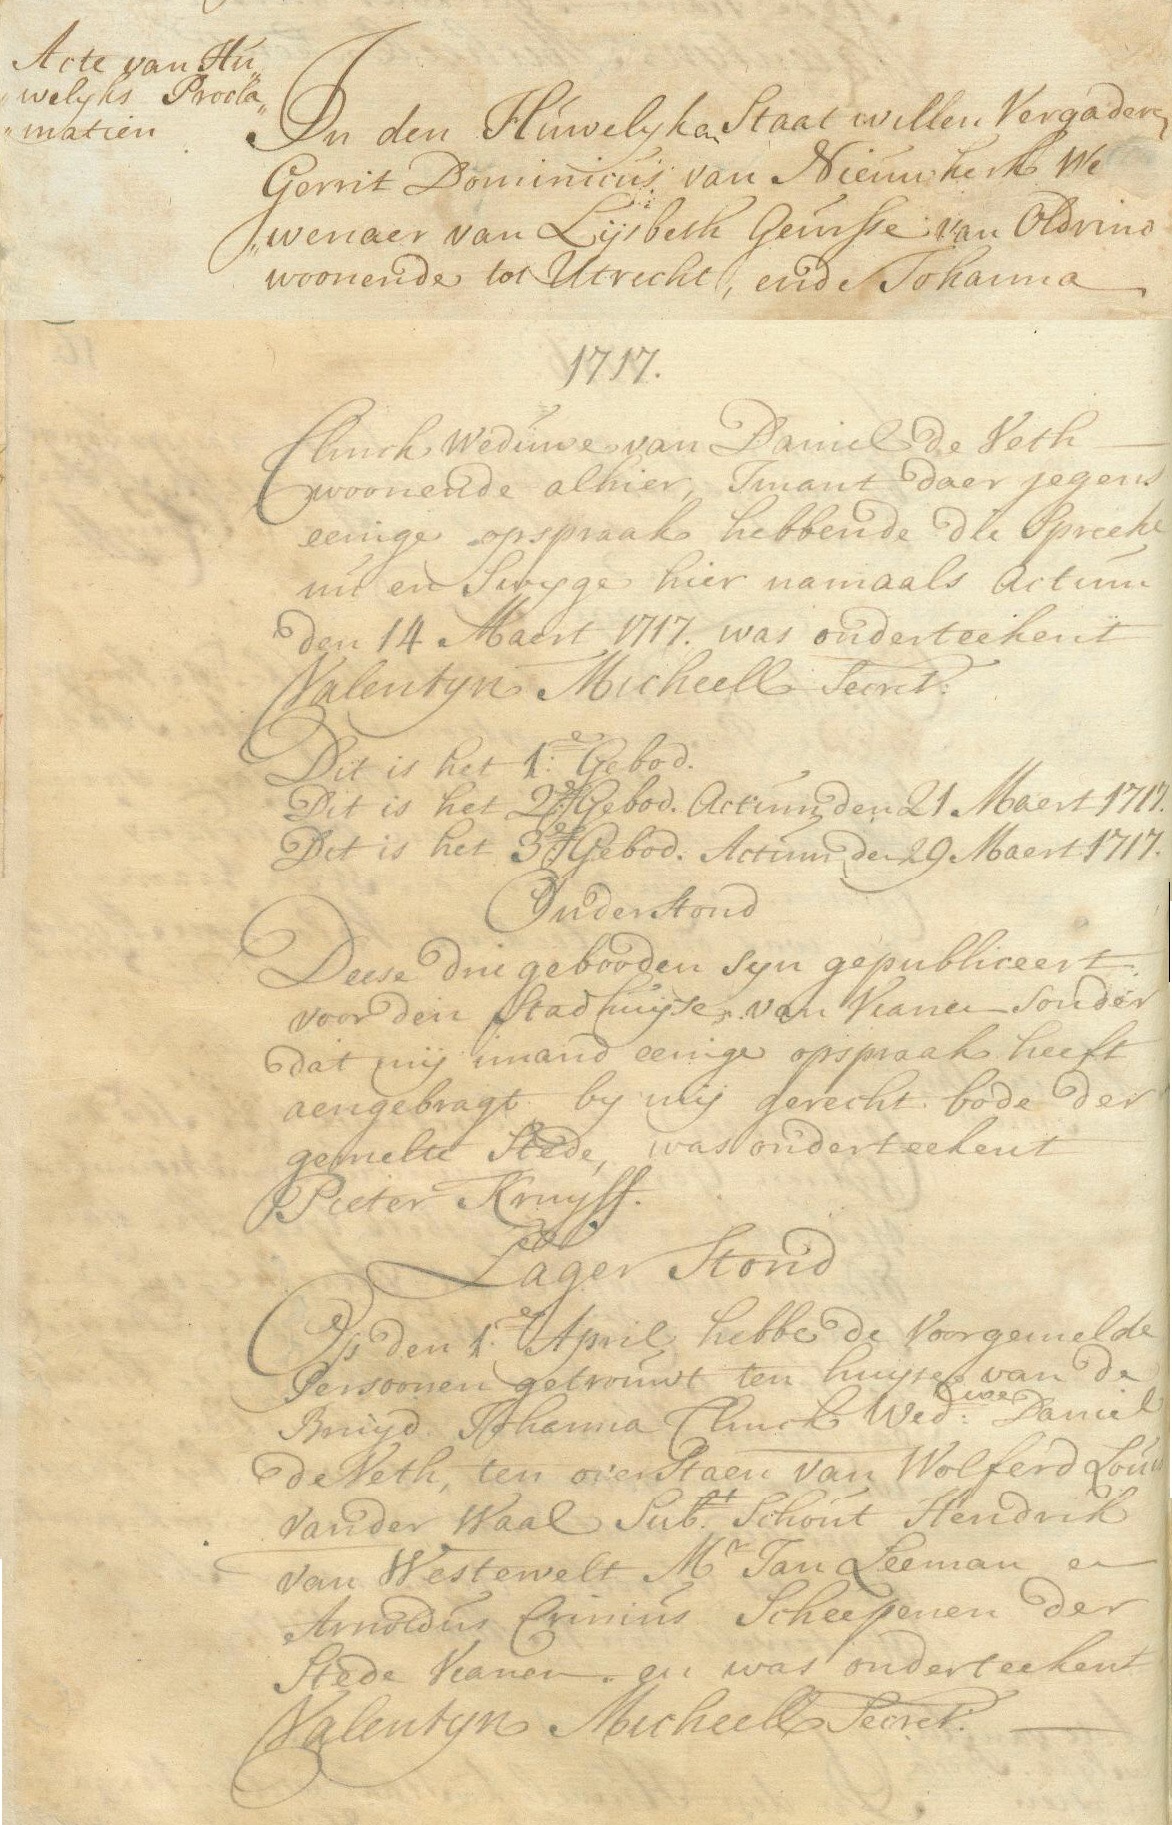 Acte van Hu„
„welyks Procla„
„matien
In den Huwelyken Staat willen Vergaderen
Gerrit Dominicus van Nieuwkerk We
„wenaer van Lijsbeth Geurse van Oldvino
woonende tot Utrecht, ende Johanna
1717.
Clinck Weduwe van Daniel de Veth
woonende alhier, Imant daer jegens
eenige opspraak hebbende die Spreeke
nu en Swyge hier namaals Actum
den 14 Maert 1717. was onderteekent
Valentyn Micheell Secret:
Dit is het 1e. Gebod.
Dit is het 2de Gebod. Actum den 21 Maert 1717.
Dit is het 3de Gebod. Actum den 29 Maert 1717.
Onderstond
Deese drie gebooden syn gepubliceert
voor den Stadhuyse van Vianen sonder
dat mij imand eenige opspraak heeft
aengebragt by mij gerecht bode der
gemelte Stede, was onderteekent
Pieter Kruyff.
Lager Stond
Op den 1e. April hebbe de Voorgemelde
Persoonen getrouwt ten huyse van de
Bruyd Johanna Clinck Wed:we Daniel
de Veth, ten overstaen van Wolferd Louis
vander Waal Subt. Schout Hendrik
van Westervelt Mr Jan Leeman en
Arnoldus Crinius Scheepenen der
Stede Vianen en was onderteekent
Valentyn Micheell Secret: